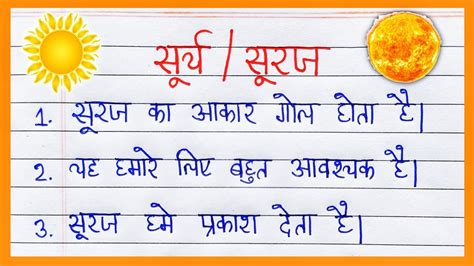 सूर्य / सूरज
1. सूरज का आकार गोल होता है।
2. यह हमारे लिए बहुत आवश्यक है।
3. सूरज हमे प्रकाश देता है।